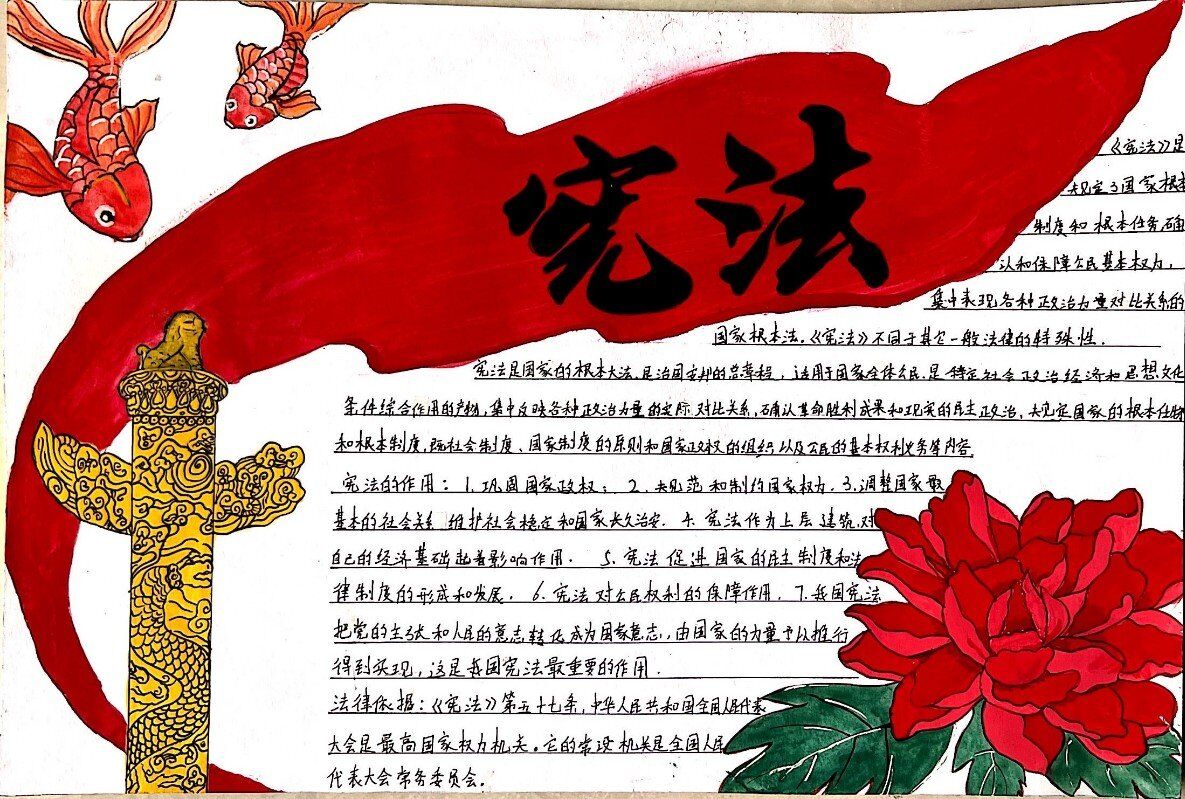 宪法
《宪法》是
规定了国家根本
制度和根本任务,确
认和保障公民基本权力,
集中表现各种政治力量对比关系的
国家根本法。《宪法》不同于其它一般法律的特殊性.
宪法是国家的根本大法,是治国安邦的总章程,适用于国家全体公民.是特定社会政治经济和思想文化
条件综合作用的产物,集中反映各种政治力量的实际对比关系,确认革命胜利成果和现实的民主政治,规定国家的根本任务
和根本制度,既社会制度、国家制度的原则和国家政权的组织以及公民的基本权利义务等内容.
宪法的作用:1.巩固国家政权;2.规范和制约国家权力.3.调整国家最
基本的社会关系 维护社会稳定和国家长久治安.4.宪法作为上层建筑,对
自己的经济基础起着影响作用.5.宪法促进国家的民主制度和法
律制度的形成和发展.6.宪法对公民权利的保障作用.7.我国宪法
把党的主张和人民的意志转化成为国家意志,由国家的力量予以推行
得到实现,这是我国宪法最重要的作用.
法律依据:《宪法》第五十七条,中华人民共和国全国人民代表
大会是最高国家权力机关。它的常设机关是全国人民
代表大会常务委员会。